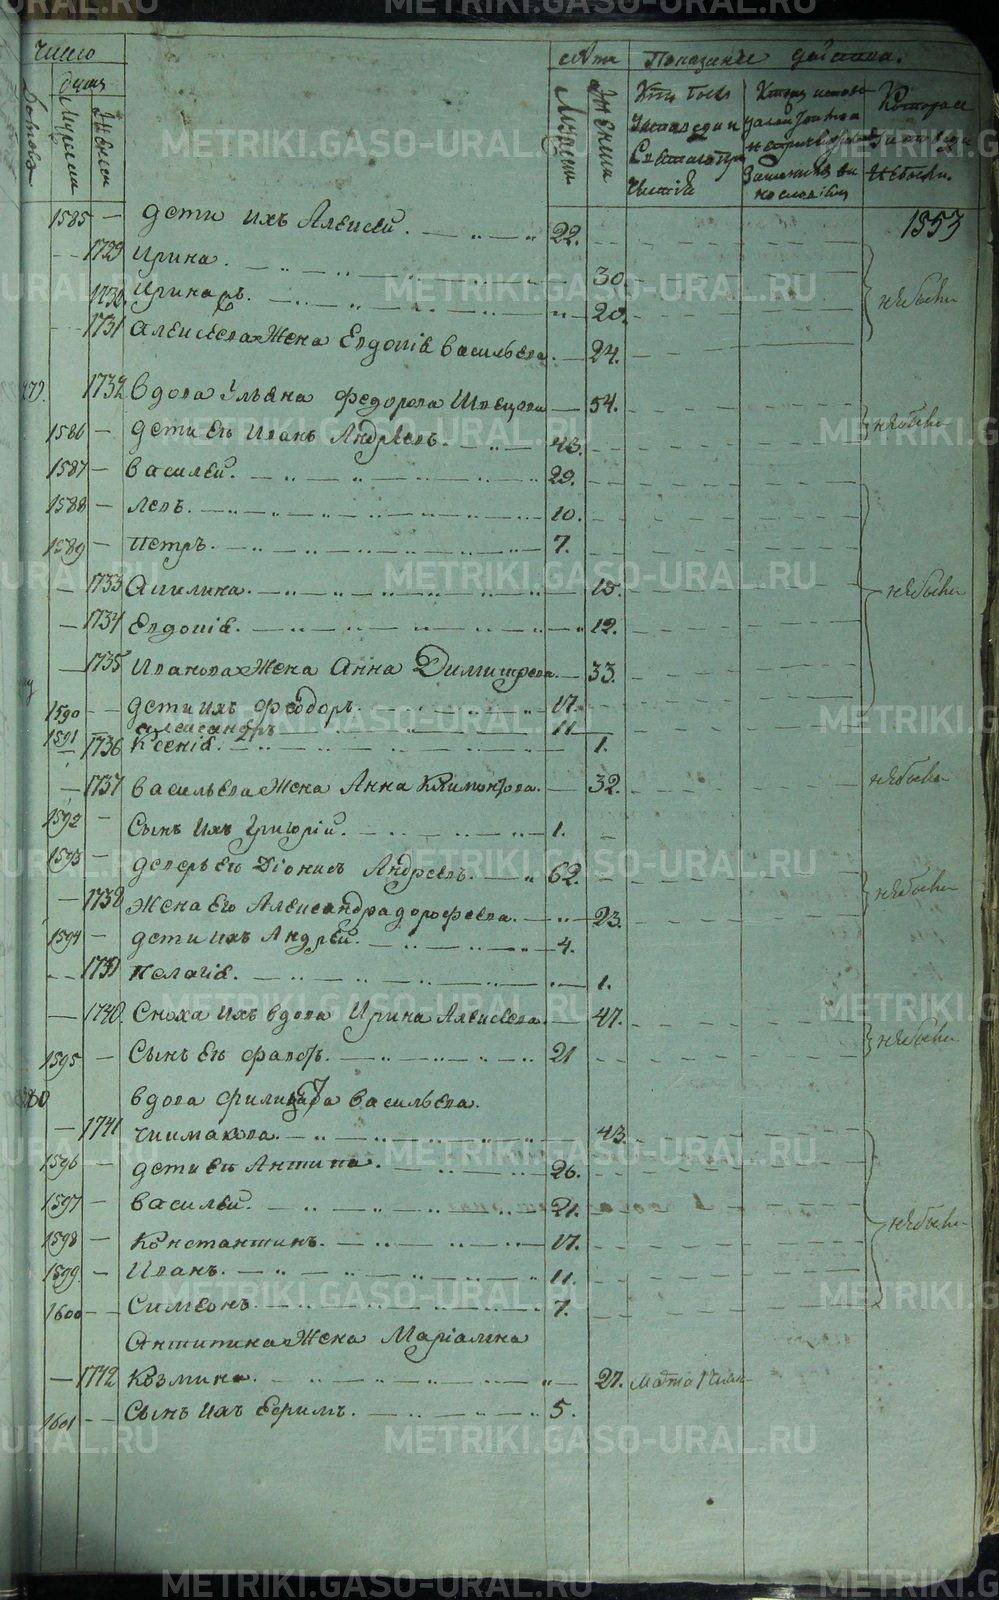 число
душъ
Домовъ
Мужеска
Женска
лѣта
Мужеск
Женск
Показаніе дѣйства.
Кто былъ у исповеди и Св. причастія
Которые
не были.
1853
1585 — дети ихъ Алексей. 22.
1729 Ирина. 30.
1730 Иринарх. 20.
не были
1731 Алексеева Жена Евдокія Васильева. 24.
1732 вдова Ульяна Федорова Швецова 54.
1586 — дети её Иванъ Андреевъ. 43.
не были
1587 — Василей. 29.
1588 — Левъ. 10.
1589 — Петръ. 7.
— 1733 Акилина. 15.
не были
— 1734 Евдокія. 12.
— 1735 Иванова Жена Анна Димитрева 33.
1590 — дети ихъ Феодоръ. 17.
1591 Александръ 11
— 1736 Ксенія. 1.
— 1737 Васильева Жена Анна Климонтова. 32.
не были
1592 — Сынъ ихъ Григорій. 1.
1593 — деверь ея Діонисъ Андреевъ. 62.
не были
— 1738 Жена его Александра дорофеева. 23.
1594 — дети ихъ Андрей. 4.
— 1739 Пелагія. 1.
— 1740 Сноха ихъ вдова Ирина Алексеева. 47.
не были
1595 — Сынъ её Фавст. 21
вдова Филицата Васильева
— 1741 Чикмакова. 43.
1596 — дети её Антипа. 26.
1597 — Василей. 21.
не были
1598 — Константинъ. 17.
1599 — Иванъ. 11.
1600 — Симеонъ. 7.
Антипина Жена Маріамна
— 1742 Козмина. 27.
1601 — Сынъ ихъ Ефимъ. 5.
METRIKI.GASO-URAL.RU